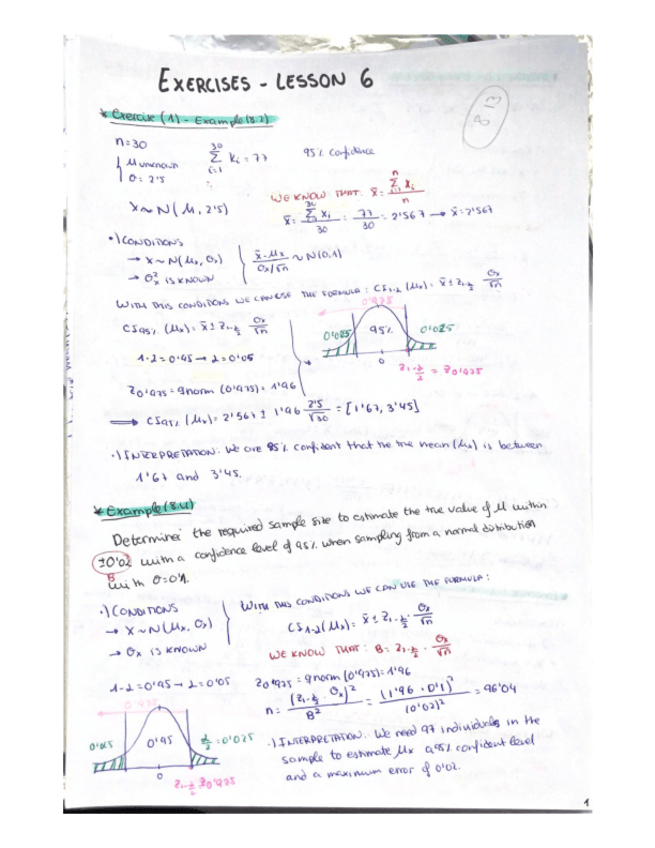 EXERCISES - LESSON 6
* Exercise (1) - Example (8.2)
n=30
μ unknown
σ = 2'5
30 Σ i=1 xi = 77
95% confidence
X ~ N(μ, 2'5)
WE KNOW THAT: x̄ = n Σ i=1 xi / n
x̄ = 30 Σ xi / 30 = 77 / 30 = 2'567 → x̄ = 2'567
·) CONDITIONS
→ X ~ N(μx, σx)
→ σx² IS KNOWN
x̄ - μx / σx/√n ~ N(0,1)
WITH THIS CONDITIONS WE CAN USE THE FORMULA: CI1-α (μx) = x̄ ± z1-α/2 σx/√n
CI95% (μx) = x̄ ± z1-α/2 σx/√n
0'975
0'025 95% 0'025
0
z1-α/2 = z0'975
1-α = 0'95 → α = 0'05
z0'975 = qnorm (0'975) = 1'96
⟹ CI95% (μx) = 2'567 ± 1'96 2'5/√30 = [1'67, 3'45]
·) INTERPRETATION: We are 95% confident that the true mean (μx) is between
1'67 and 3'45.
* Example (8.4)
Determine the required sample size to estimate the true value of μ within
±0'02 with a confidence level of 95% when sampling from a normal distribution
B
with σ=0'1.
·) CONDITIONS
→ X ~ N(μx, σx)
→ σx IS KNOWN
WITH THIS CONDITIONS WE CAN USE THE FORMULA:
CI1-α (μx) = x̄ ± z1-α/2 · σx/√n
WE KNOW THAT: B = z1-α/2 · σx/√n
1-α = 0'95 → α = 0'05
z0'975 = qnorm (0'975) = 1'96
n = (z1-α/2 · σx)² / B² = (1'96 · 0'1)² / (0'02)² = 96'04
0'975
0'025 0'95 α/2 = 0'025
0
z1-α/2 z0'975
·) INTERPRETATION: We need 97 individuals in the
sample to estimate μx a 95% confident level
and a maximum error of 0'02.
1